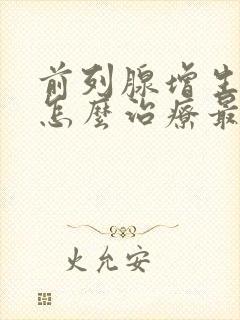 前列腺增生
怎麼治療最
火允安